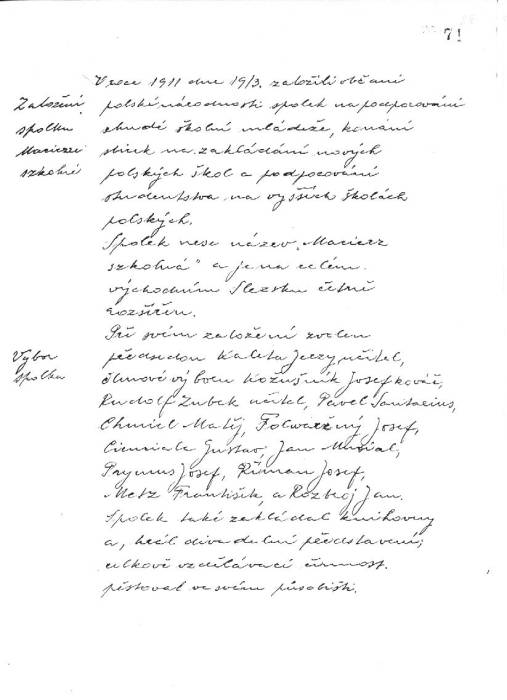 71
V roce 1911 dne 19/3. založili občané
Založení
polské národnosti spolek na podporování
spolku
chudé školní mládeže, konání
Macierzei
sbírek na zakládání nových
szkolné
polských škol a podporování
studentstva na vyšších školách
polských.
Spolek nese název „Macierz
szkolná" a je na celém
východním Slezsku četně
rozšířen.
Při svém založení zvolen
Výbor
předsedou Kaleta Jerzy, učitel,
spolku
členové výboru Kožušník Josef kovář,
Rudolf Zubek učitel, Pavel Santarius,
Chmiel Matěj, Folwarczný Josef,
Cienciala Gustav, Jan Musial,
Prymus Josef, Říman Josef,
Metz František, a Rozbroj Jan.
Spolek také zakládal knihovny
a, hrál divadelní představení;
celkově vzdělávací činnost
pěstoval ve svém působišti.